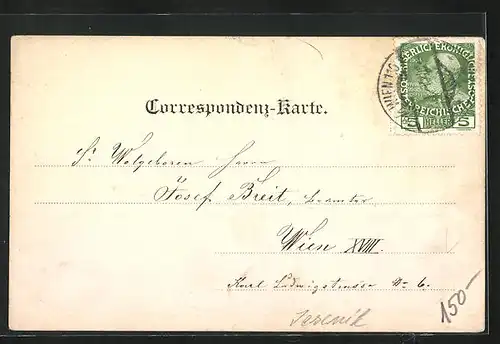 KAISERLICH KÖNIGLICHE
ÖSTERREICHISCHE POST
5 HELLER 5
WIEN 110
Correspondenz-Karte.
Sr. Wolgeboren Herrn
Josef Breit, beamter
Wien XVIII.
Karl Ludwigstrasse No 6.
150-